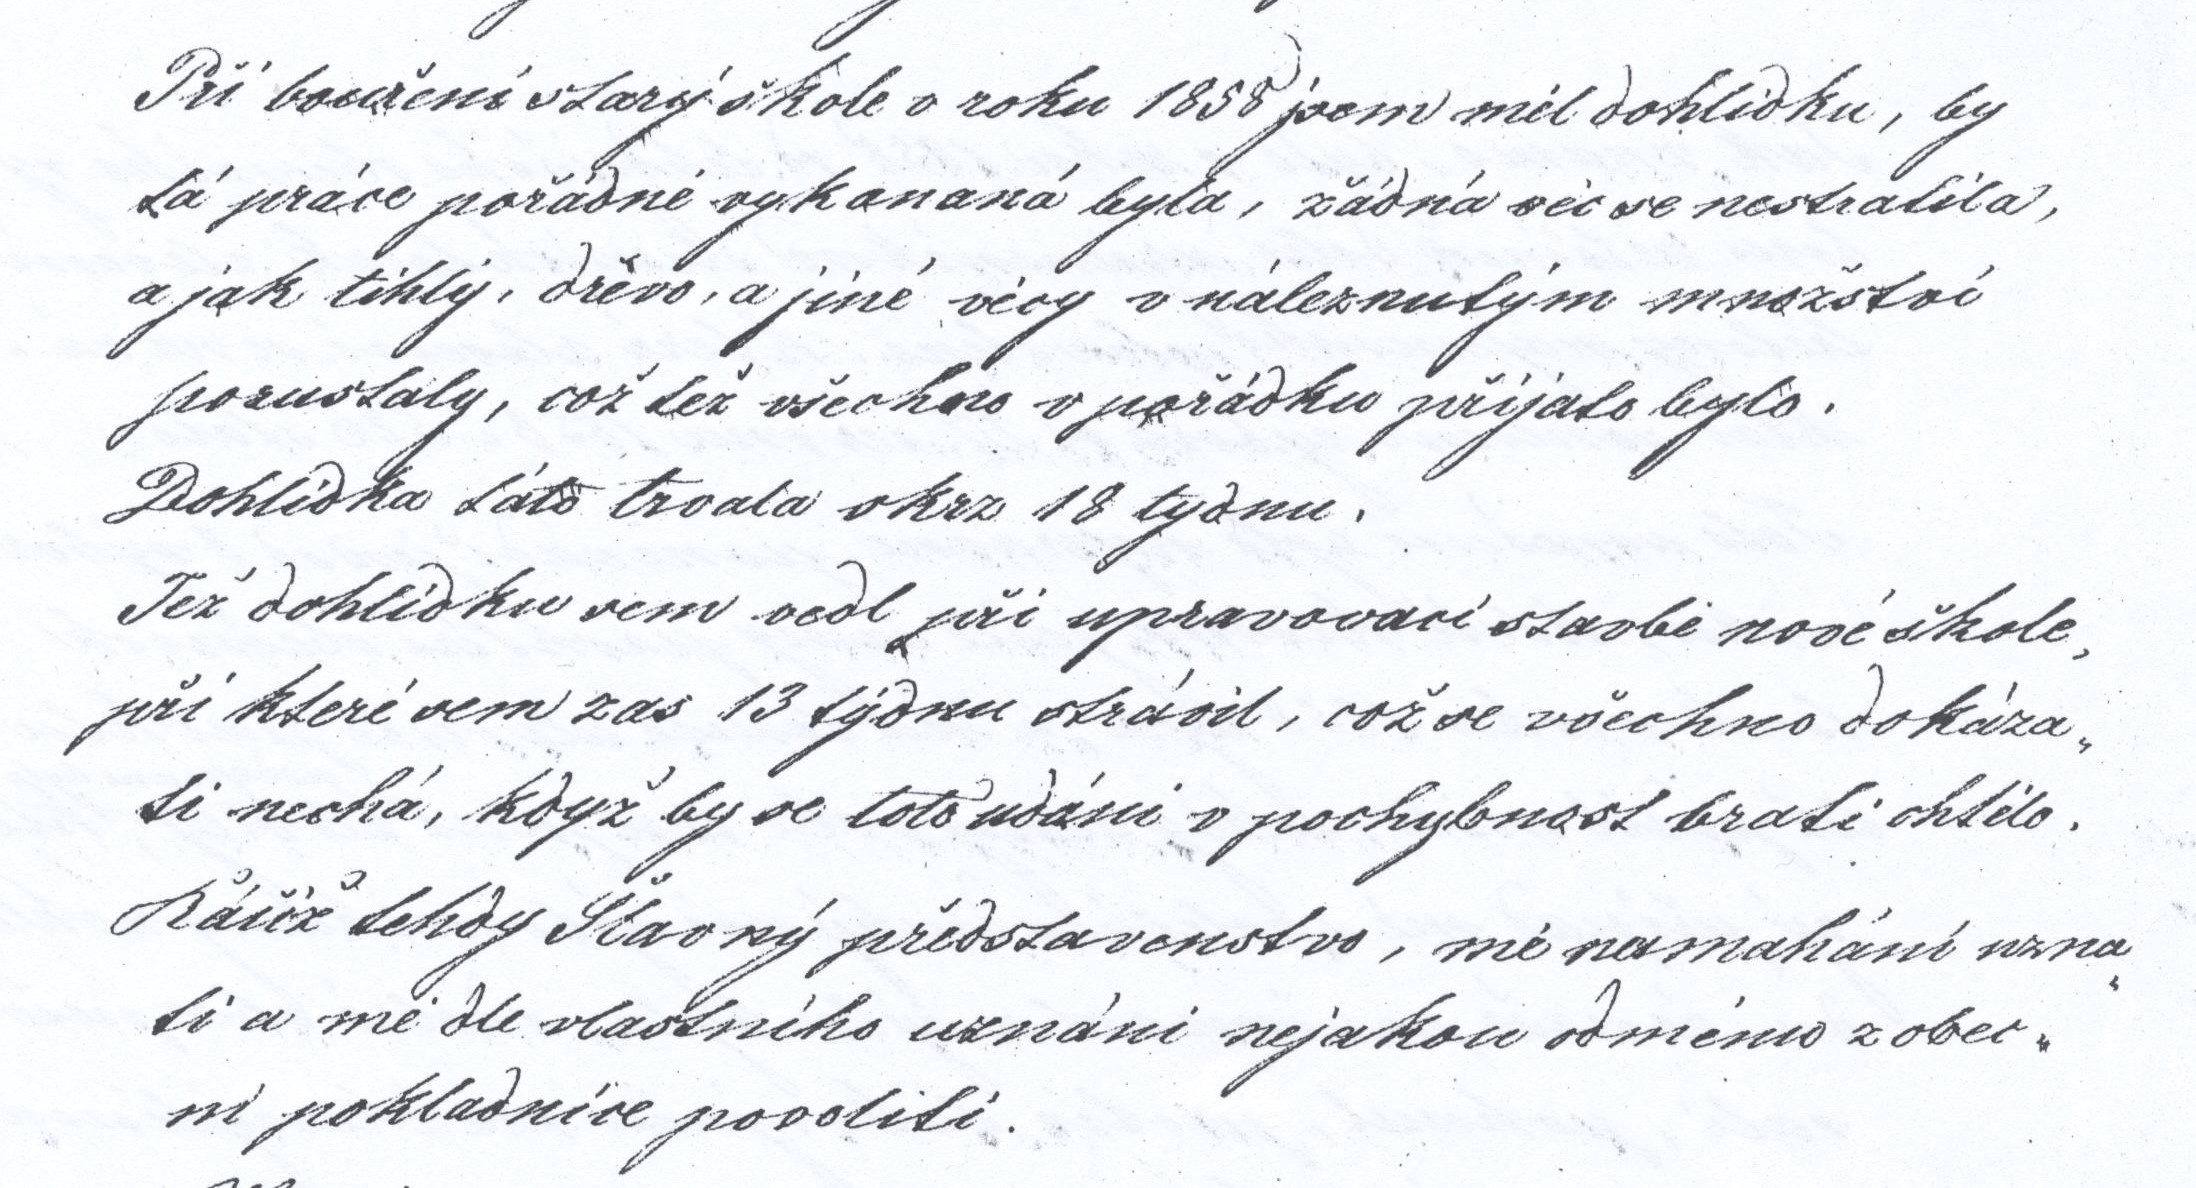 Při bouření starý škole v roku 1858 jsem měl dohlídku, by
tá práce pořádně vykonaná byla, žádná věc se nestratila,
a jak tihly, dřevo, a jiné věcy v náleznutým množství
pozustaly, což též všechno v pořádku přijato bylo.
Dohlídka táto trvala skrz 18 tydnu.
Též dohlídku sem vedl při upravovací stavbě nové škole,
při které sem zas 13 týdnu strávil, což se všechno dokáza„
ti nechá, když by se toto udáni v pochybnost brati chtělo.
Ráčiž tehdy Slavný představenstvo, mé namahání uzna„
ti a mě dle vlastního uznáni nejakou odměnu z obec„
ní pokladnice povoliti.